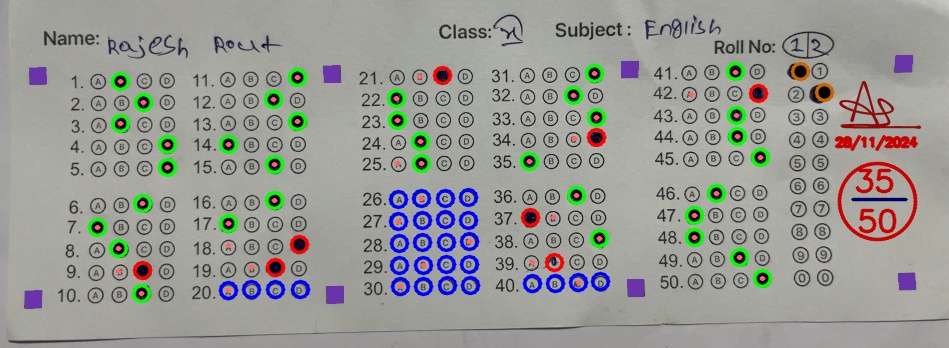 Name: Rajesh Rout
Class: Subject : English
Roll No: 12
1. A C D
2. A B D
3. A C D
4. A B C
5. A B C
6. A B D
7. B C D
8. A C D
9. A B D
10. A B D
11. A B C
12. A B D
13. A B C
14. B C D
15. A B D
16. A B D
17. B C D
18. A B C
19. A B D
20. A B C D
21. A B D
22. B C D
23. B C D
24. A C D
25. A C D
26. A B C D
27. A B C D
28. A B C D
29. A B C D
30. A B C D
31. A B C
32. A B D
33. A B C
34. A B C
35. B C D
36. A B D
37. B C D
38. A B C
39. A C D
40. A B C D
41. A B D
42. A B C
43. A B D
44. A B D
45. A B C
46. A C D
47. B C D
48. B C D
49. A B D
50. A B C
1
2
3 3
4 4
5 5
6 6
7 7
8 8
9 9
0 0
28/11/2024
35
50